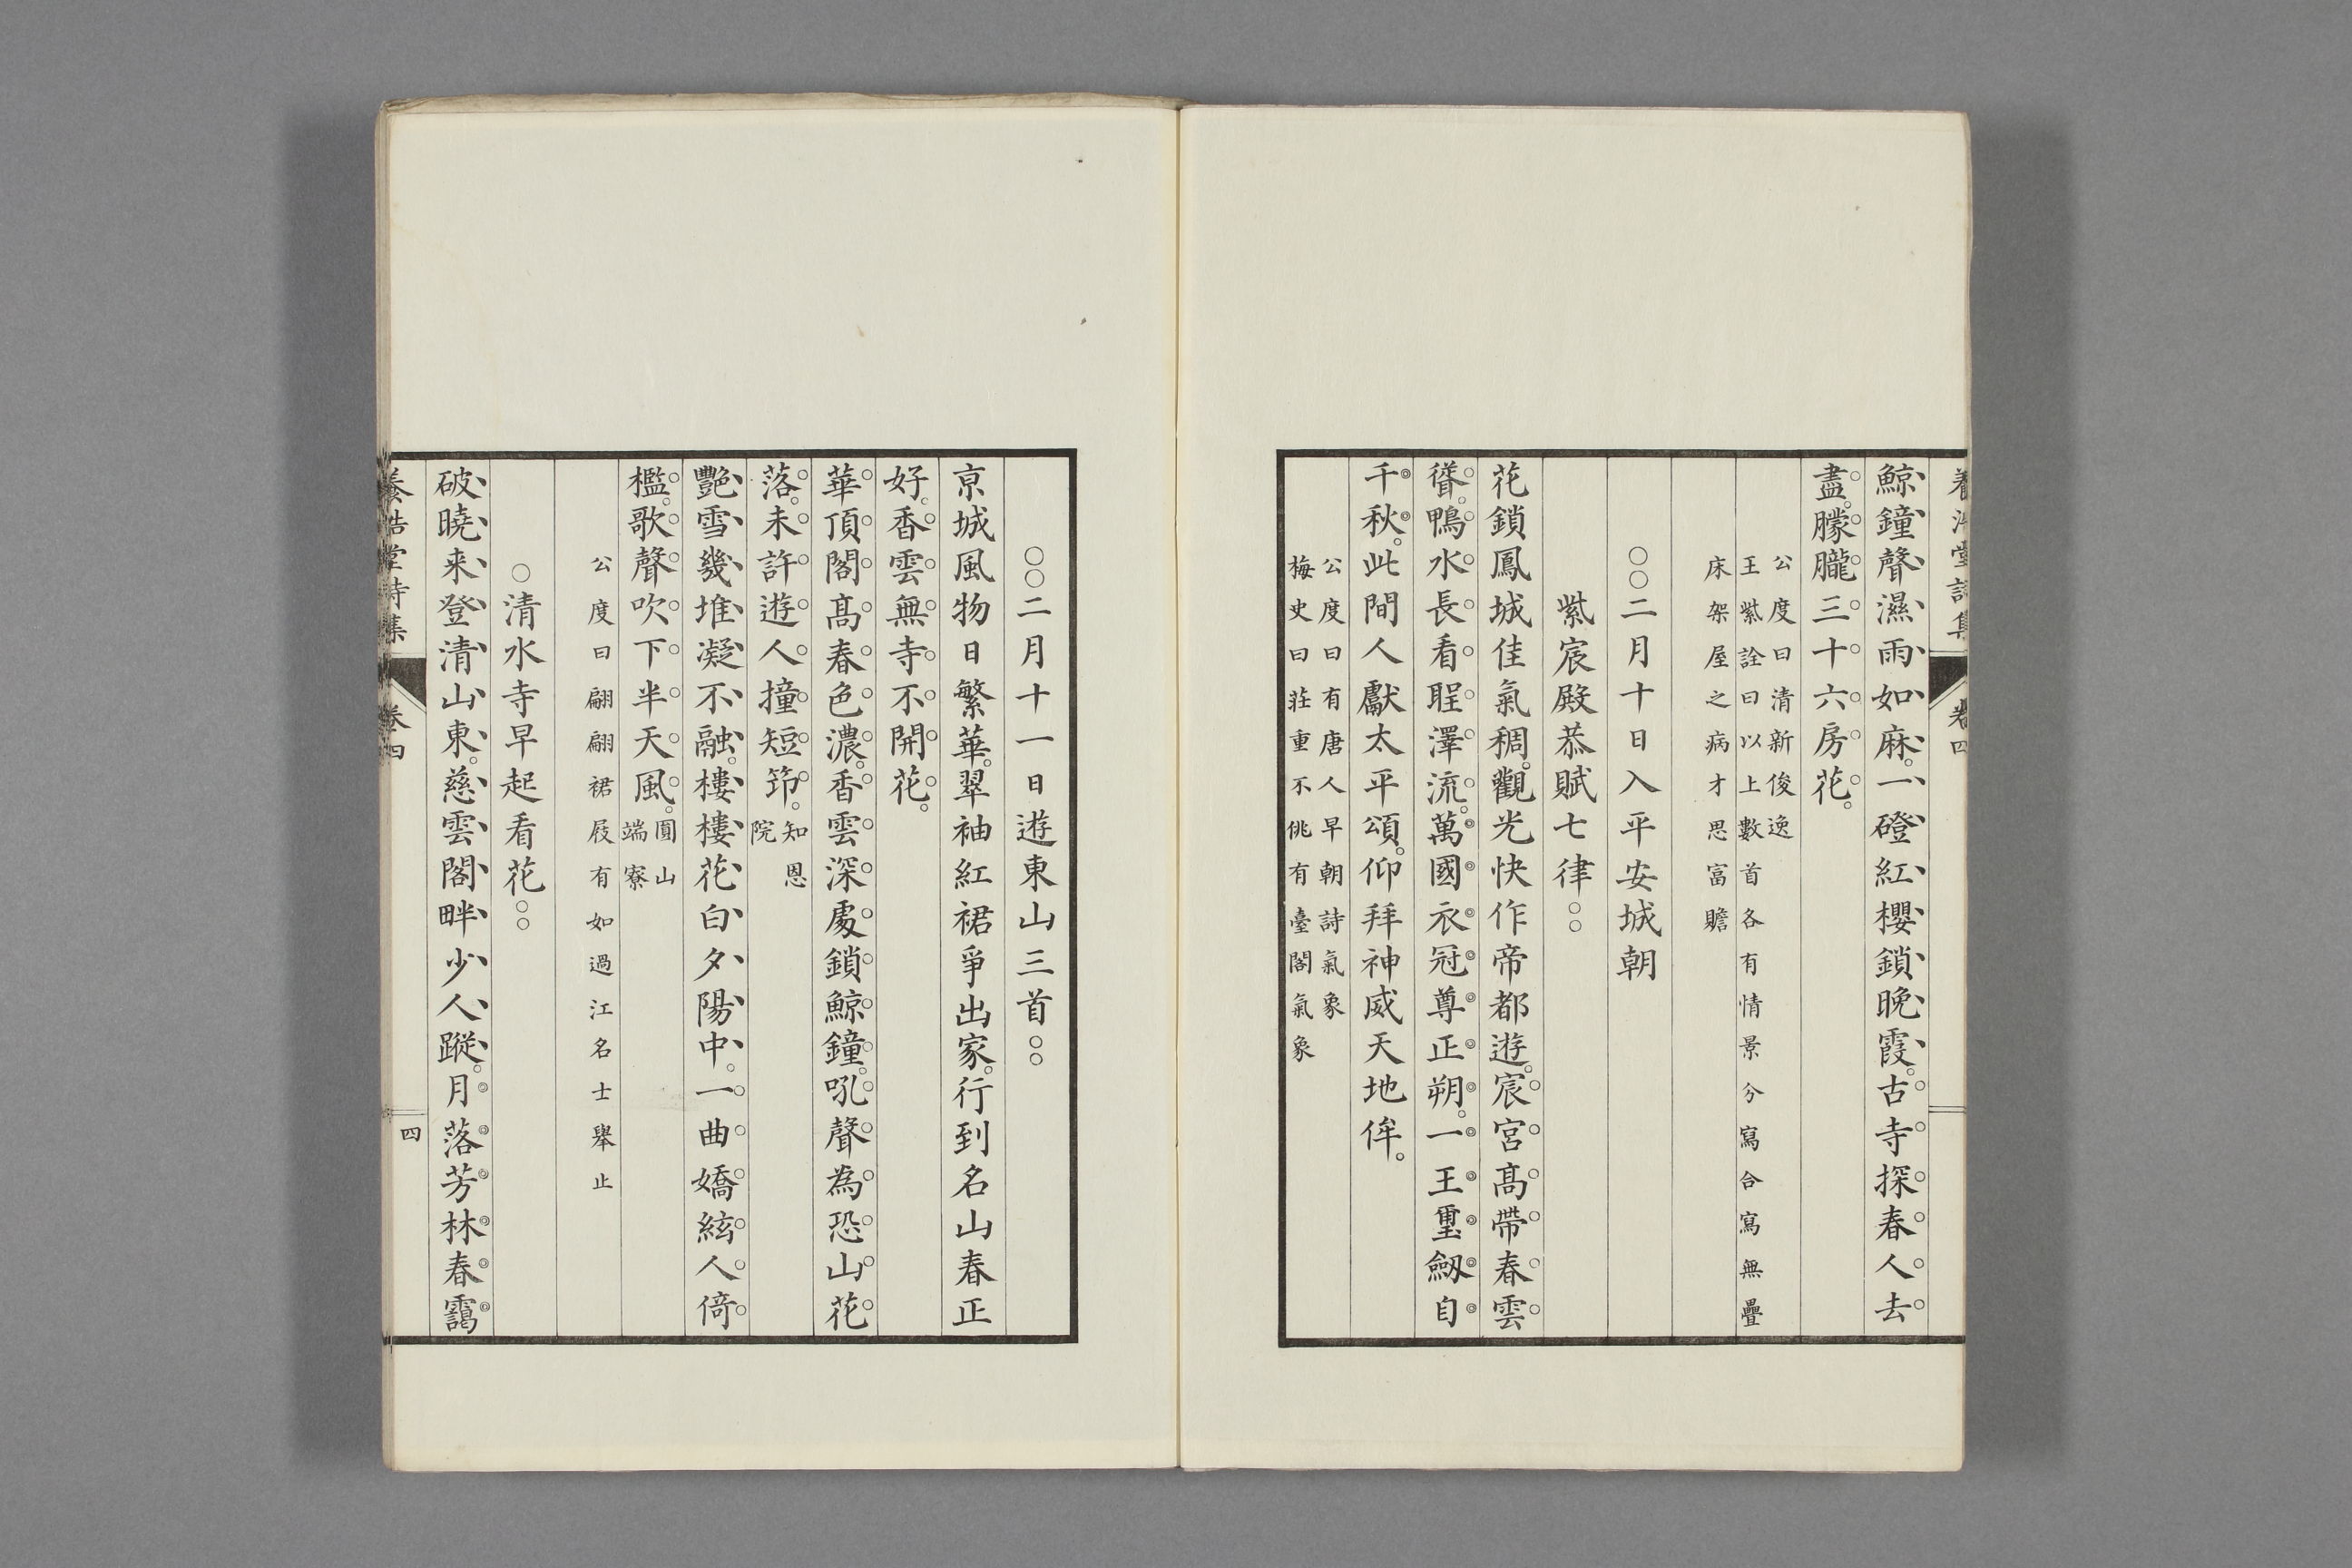 鯨鐘聲濕雨如麻。一磴紅櫻鎖晚霞。古寺探春人去
盡。朦朧三十六房花。
公度曰清新俊逸
王紫詮曰以上數首各有情景分寫合寫無疊
床架屋之病才思富贍
○○二月十日入平安城朝
紫宸殿恭賦七律○○
花鎖鳳城佳氣稠。觀光快作帝都遊。宸宮髙帶春雲
聳。鴨水長看聖澤流。萬國衣冠尊正朔。一王璽劔自
千秋。此間人獻太平頌。仰拜神威天地侔。
公度曰有唐人早朝詩氣象
梅史曰莊重不佻有臺閣氣象
○○二月十一日遊東山三首○○
京城風物日繁華。翠袖紅裙爭出家。行到名山春正
好。香雲無寺不開花。
華頂閣髙春色濃。香雲深處鎖鯨鐘。吼聲為恐山花
落。未許遊人撞短笻。知恩
院
艷雪幾堆凝不融。樓樓花白夕陽中。一曲嬌絃人倚
檻。歌聲吹下半天風。圓山
端寮
公度曰翩翩裙屐有如過江名士舉止
○清水寺早起看花○○
破曉来登清山東。慈雲閣畔少人蹤。月落芳林春靄
養浩堂詩集 卷四
四